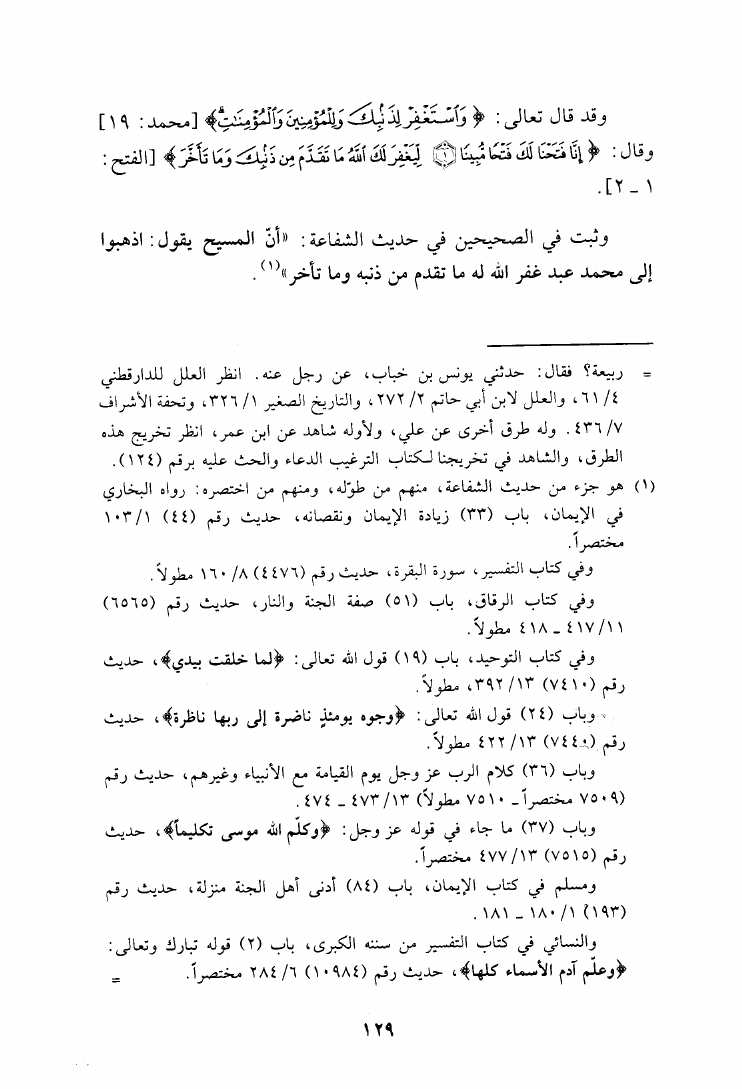 وقد قال تعالى: ﴿ وَٱسْتَغْفِرْ لِذَنۢبِكَ وَلِلْمُؤْمِنِينَ وَٱلْمُؤْمِنَٰتِۗ ﴾ [محمد: ١٩]
وقال: ﴿ إِنَّا فَتَحْنَا لَكَ فَتْحًا مُّبِينًا ۝١ لِّيَغْفِرَ لَكَ ٱللَّهُ مَا تَقَدَّمَ مِن ذَنۢبِكَ وَمَا تَأَخَّرَ ﴾ [الفتح:
١ ـ ٢].
وثبت في الصحيحين في حديث الشفاعة: «أنّ المسيح يقول: اذهبوا
إلى محمد عبد غفر الله له ما تقدم من ذنبه وما تأخر»(١).
= ربيعة؟ فقال: حدثني يونس بن خباب، عن رجل عنه. انظر العلل للدارقطني
٤/ ٦١، والعلل لابن أبي حاتم ٢/ ٢٧٢، والتاريخ الصغير ١/ ٣٢٦، وتحفة الأشراف
٧/ ٤٣٦. وله طرق أخرى عن علي، ولأوله شاهد عن ابن عمر، انظر تخريج هذه
الطرق، والشاهد في تخريجنا لكتاب الترغيب الدعاء والحث عليه برقم (١٢٤).
(١) هو جزء من حديث الشفاعة، منهم من طوّله، ومنهم من اختصره: رواه البخاري
في الإيمان، باب (٣٣) زيادة الإيمان ونقصانه، حديث رقم (٤٤) ١/ ١٠٣
مختصراً.
وفي كتاب التفسير، سورة البقرة، حديث رقم (٤٤٧٦) ٨/ ١٦٠ مطولاً.
وفي كتاب الرقاق، باب (٥١) صفة الجنة والنار، حديث رقم (٦٥٦٥)
١١/ ٤١٧ ـ ٤١٨ مطولاً.
وفي كتاب التوحيد، باب (١٩) قول الله تعالى: ﴿لما خلقت بيدي﴾، حديث
رقم (٧٤١٠) ١٣/ ٣٩٢، مطولاً.
وباب (٢٤) قول الله تعالى: ﴿وجوه يومئذٍ ناضرة إلى ربها ناظرة﴾، حديث
رقم (٧٤٤٠) ١٣/ ٤٢٢ مطولاً.
وباب (٣٦) كلام الرب عز وجل يوم القيامة مع الأنبياء وغيرهم، حديث رقم
(٧٥٠٩ مختصراً ـ ٧٥١٠ مطولاً) ١٣/ ٤٧٣ ـ ٤٧٤.
وباب (٣٧) ما جاء في قوله عز وجل: ﴿وكلّم الله موسى تكليماً﴾، حديث
رقم (٧٥١٥) ١٣/ ٤٧٧ مختصراً.
ومسلم في كتاب الإيمان، باب (٨٤) أدنى أهل الجنة منزلة، حديث رقم
(١٩٣) ١/ ١٨٠ ـ ١٨١.
والنسائي في كتاب التفسير من سننه الكبرى، باب (٢) قوله تبارك وتعالى:
﴿وعلّم آدم الأسماء كلها﴾، حديث رقم (١٠٩٨٤) ٦/ ٢٨٤ مختصراً. =
١٢٩